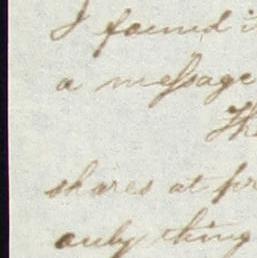 I found i
a message
Th
shares at pr
only thing